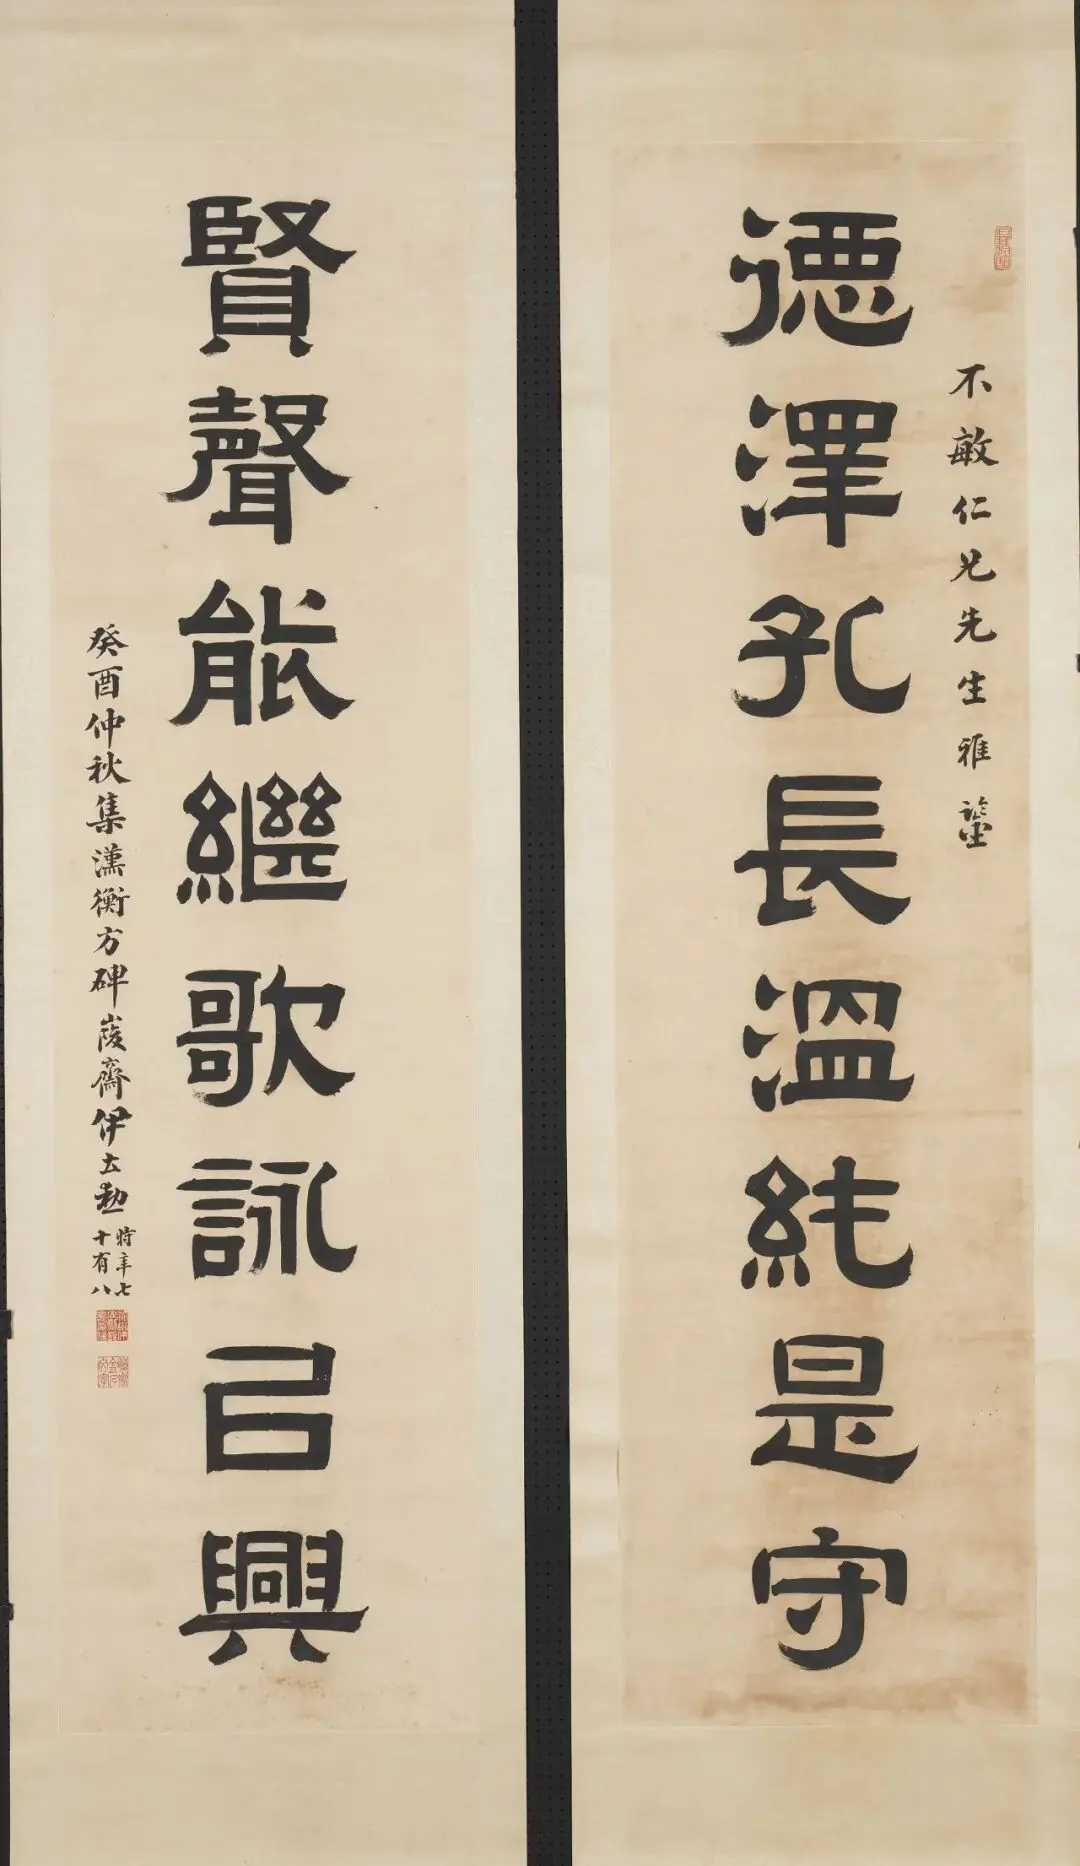 不敏仁兄先生雅鑒
德澤孔長溫純是守
賢聲能繼歌詠㠯興
癸酉仲秋集漢衡方碑峻齋伊立勳時年七十有八